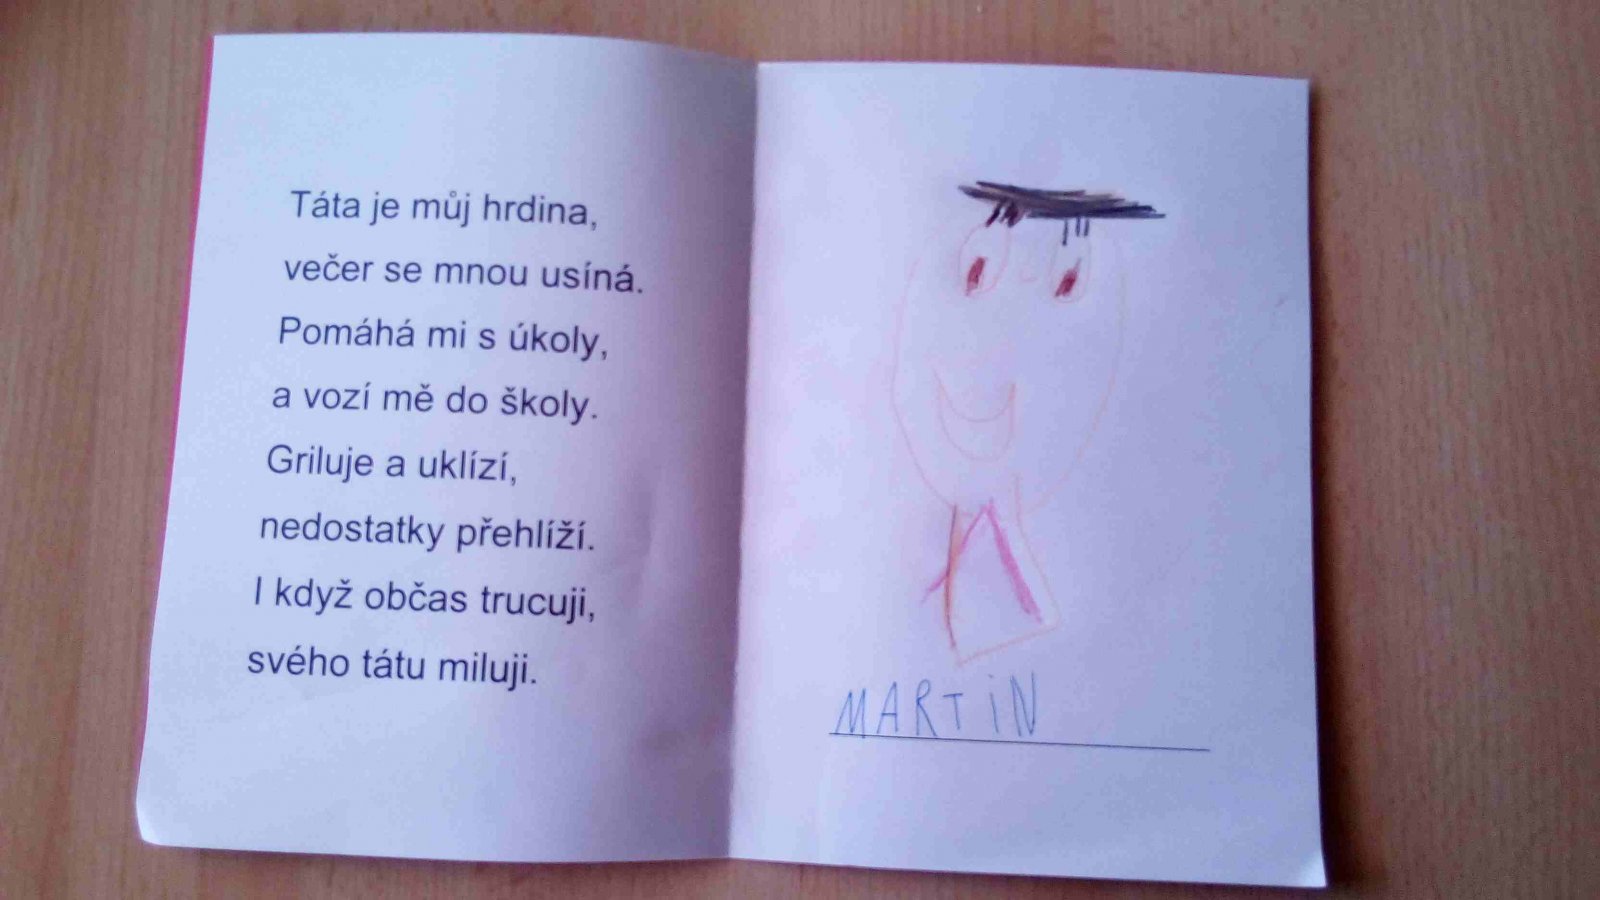 Táta je můj hrdina,
večer se mnou usíná.
Pomáhá mi s úkoly,
a vozí mě do školy.
Griluje a uklízí,
nedostatky přehlíží.
I když občas trucuji,
svého tátu miluji.
MARTiN